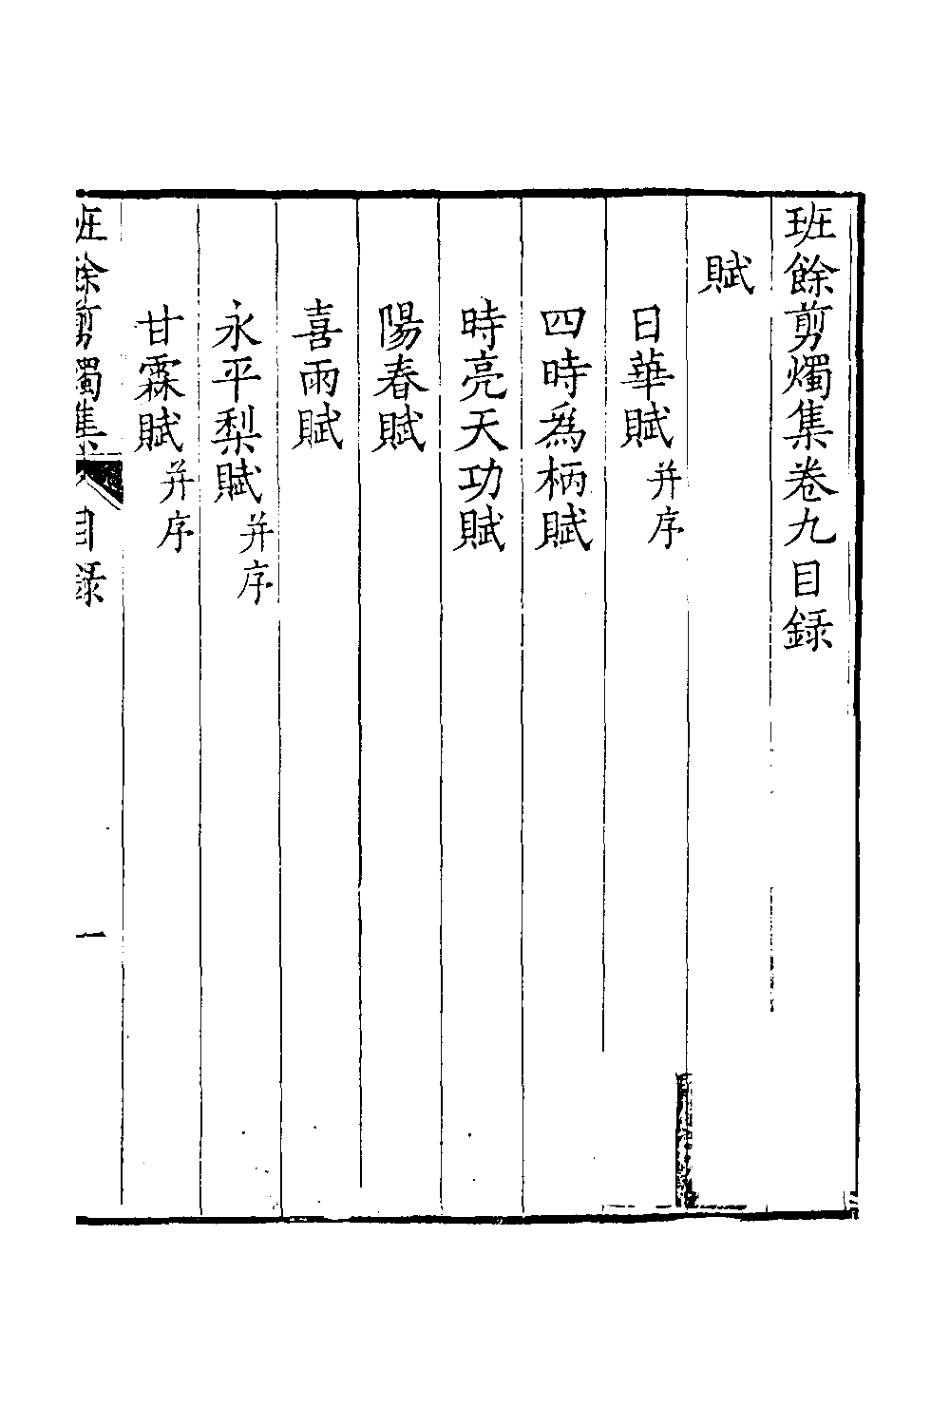 班餘剪燭集卷九目録
賦
日華賦并序
四時為柄賦
時亮天功賦
陽春賦
喜雨賦
永平梨賦并序
甘霖賦并序
班餘剪燭集 目録 一